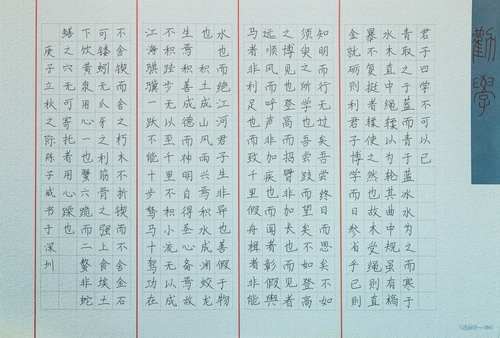 勸學
君子曰学不可以已
青取之于蓝而青于蓝冰水为之而寒于
水木直中绳輮以为轮其曲中规虽有槁
暴不复挺者輮使之然也故木受绳则直
金就砺则利君子博学而日参省乎己则
知明而行无过矣吾尝终日而思矣不如
须臾之所学也吾尝跂而望矣不如登高
之博见也登高而招臂非加长也而见者
远顺风而呼声非加疾也而闻者彰假舆
马者非利足也而致千里假舟楫者非能
水也而绝江河君子生非异也善假于物
也 积土成山风雨兴焉积水成渊蛟龙
生焉积善成德而神明自得圣心备焉故
不积跬步无以至千里不积小流无以成
江海骐骥一跃不能十步驽马十驾功在
不舍锲而舍之朽木不折锲而不舍金石
可镂蚓无爪牙之利筋骨之强上食埃土
下饮黄泉用心一也蟹六跪而二螯非蛇
蟮之穴无可寄托者用心躁也
庚子立秋之际陈子威书于深圳